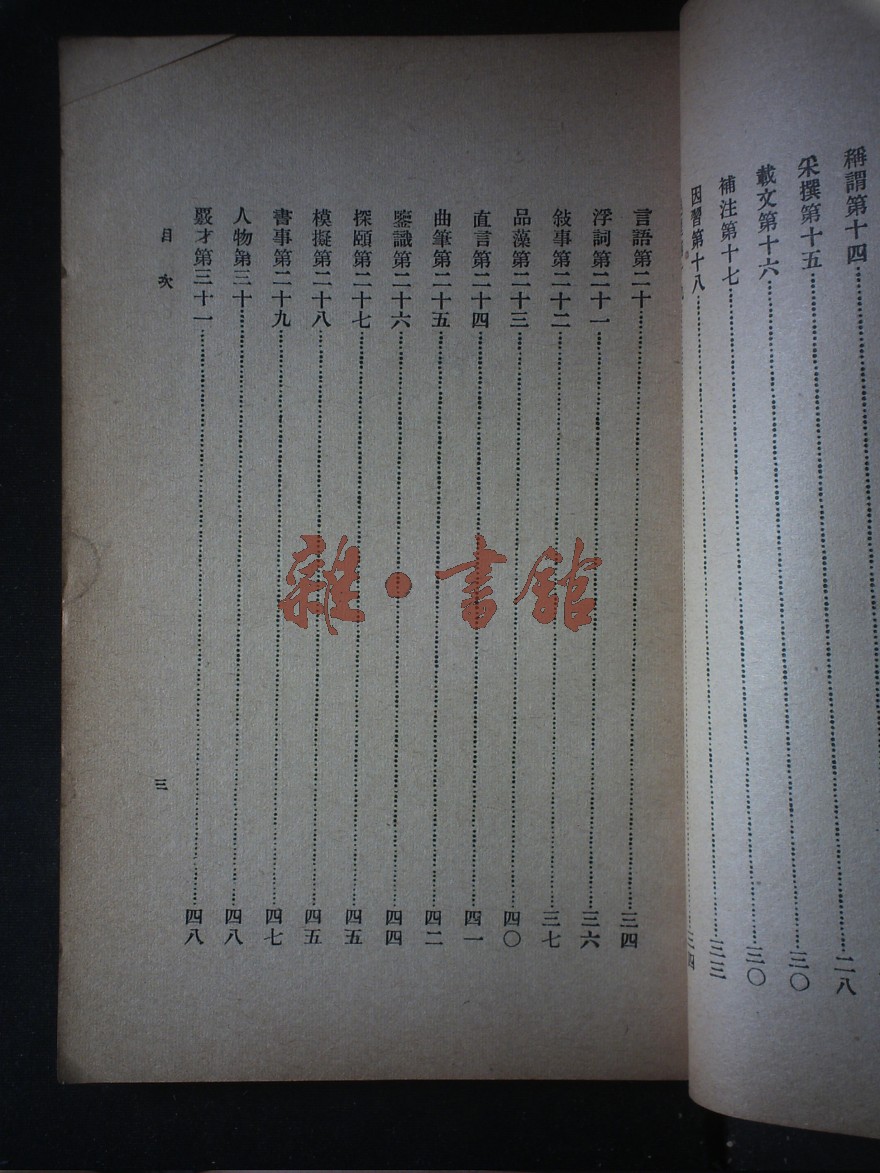 稱謂第十四……二八
采撰第十五……三〇
載文第十六……三〇
補注第十七……三三
因習第十八……三四
言語第二十……三四
浮詞第二十一……三六
敍事第二十二……三七
品藻第二十三……四〇
直言第二十四……四一
曲筆第二十五……四二
鑒識第二十六……四四
探賾第二十七……四五
模擬第二十八……四五
書事第二十九……四七
人物第三十……四八
覈才第三十一……四八
目次
三
雜·書館